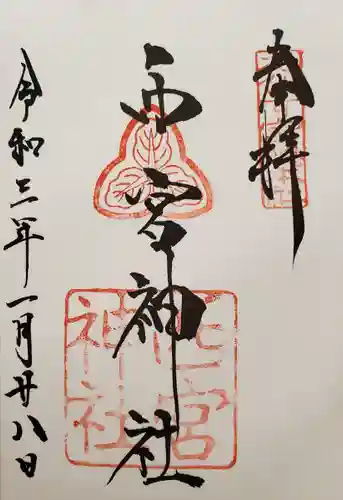 奉拝
西宮神社
令和三年一月廿八日
宮
神社